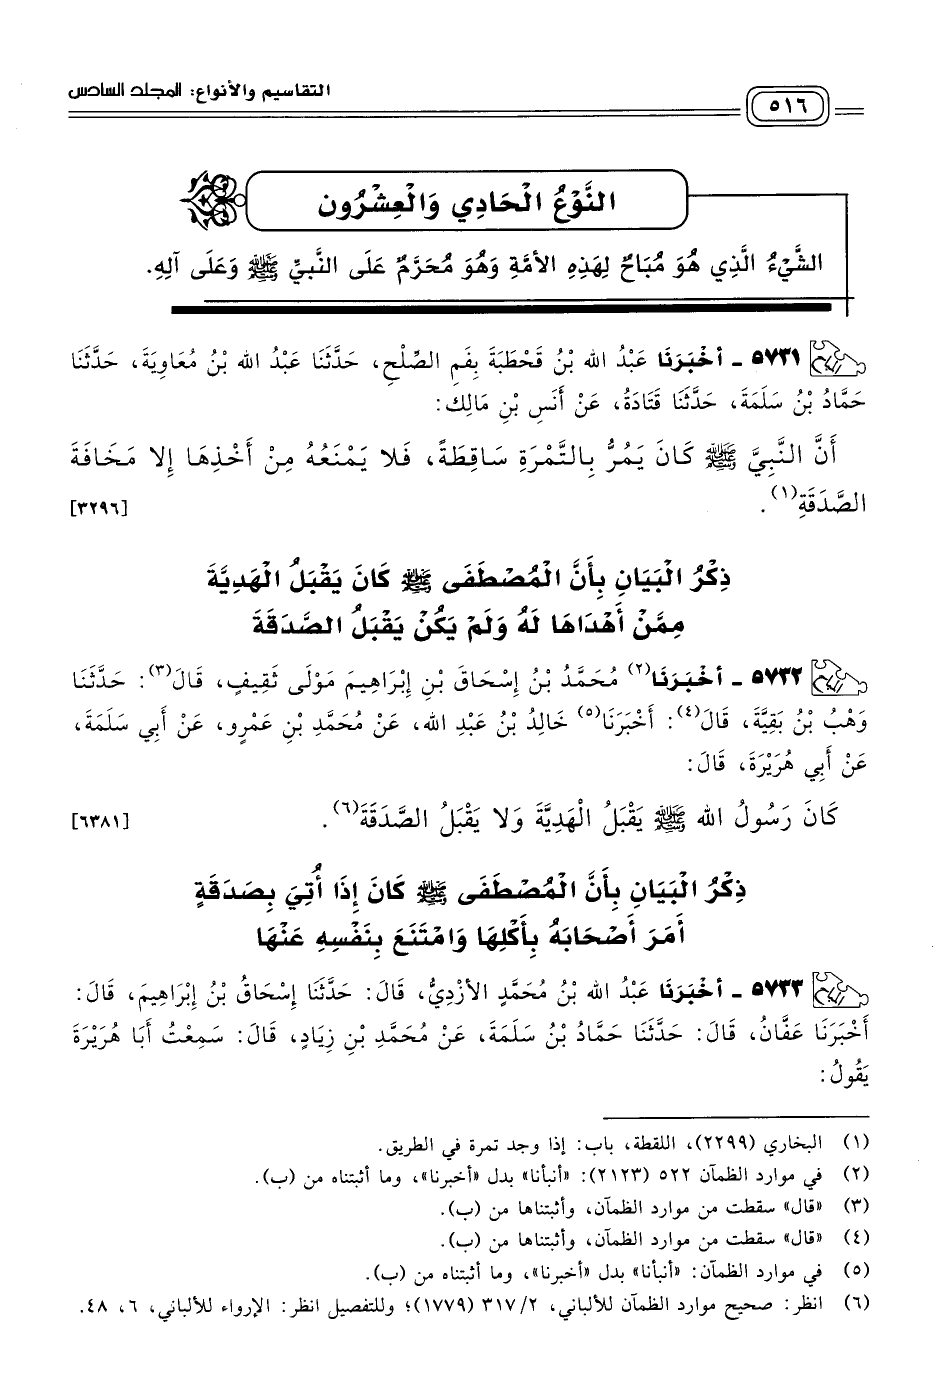 التقاسيم والأنواع: المجلد السادس
٥١٦
النَّوْعُ الْحَادِي وَالْعِشْرُون
الشَّيْءُ الَّذِي هُوَ مُبَاحٌ لِهَذِهِ الأمَّةِ وَهُوَ مُحَرَّمٌ عَلَى النَّبِيِّ ﷺ وَعَلَى آلِهِ.
٥٧٣١ - أَخْبَرَنَا عَبْدُ الله بْنُ قَحْطَبَةَ بِفَمِ الصِّلْحِ، حَدَّثَنَا عَبْدُ الله بْنُ مُعَاوِيَةَ، حَدَّثَنَا
حَمَّادُ بْنُ سَلَمَةَ، حَدَّثَنَا قَتَادَةُ، عَنْ أَنَسِ بْنِ مَالِك:
أَنَّ النَّبِيَّ ﷺ كَانَ يَمُرُّ بِالتَّمْرَةِ سَاقِطَةً، فَلا يَمْنَعُهُ مِنْ أَخْذِهَا إِلا مَخَافَةَ
الصَّدَقَةِ(١). [٣٢٩٦]
ذِكْرُ الْبَيَانِ بِأَنَّ الْمُصْطَفَى ﷺ كَانَ يَقْبَلُ الْهَدِيَّةَ
مِمَّنْ أَهْدَاهَا لَهُ وَلَمْ يَكُنْ يَقْبَلُ الصَّدَقَةَ
٥٧٣٢ - أَخْبَرَنَا(٢) مُحَمَّدُ بْنُ إِسْحَاقَ بْنِ إِبْرَاهِيمَ مَوْلَى ثَقِيفٍ، قَالَ(٣): حَدَّثَنَا
وَهْبُ بْنُ بَقِيَّةَ، قَالَ(٤): أَخْبَرَنَا(٥) خَالِدُ بْنُ عَبْدِ الله، عَنْ مُحَمَّدِ بْنِ عَمْرٍو، عَنْ أَبِي سَلَمَةَ،
عَنْ أَبِي هُرَيْرَةَ، قَالَ:
كَانَ رَسُولُ الله ﷺ يَقْبَلُ الْهَدِيَّةَ وَلا يَقْبَلُ الصَّدَقَةَ(٦). [٦٣٨١]
ذِكْرُ الْبَيَانِ بِأَنَّ الْمُصْطَفَى ﷺ كَانَ إِذَا أُتِيَ بِصَدَقَةٍ
أَمَرَ أَصْحَابَهُ بِأَكْلِهَا وَامْتَنَعَ بِنَفْسِهِ عَنْهَا
٥٧٣٣ - أَخْبَرَنَا عَبْدُ الله بْنُ مُحَمَّدٍ الأزْدِيُّ، قَالَ: حَدَّثَنَا إِسْحَاقُ بْنُ إِبْرَاهِيمَ، قَالَ:
أَخْبَرَنَا عَفَّانُ، قَالَ: حَدَّثَنَا حَمَّادُ بْنُ سَلَمَةَ، عَنْ مُحَمَّدِ بْنِ زِيَادٍ، قَالَ: سَمِعْتُ أَبَا هُرَيْرَةَ
يَقُولُ:
(١) البخاري (٢٢٩٩)، اللقطة، باب: إذا وجد تمرة في الطريق.
(٢) في موارد الظمآن ٥٢٢ (٢١٢٣): «أنبأنا» بدل «أخبرنا»، وما أثبتناه من (ب).
(٣) «قال» سقطت من موارد الظمآن، وأثبتناها من (ب).
(٤) «قال» سقطت من موارد الظمآن، وأثبتناها من (ب).
(٥) في موارد الظمآن: «أنبأنا» بدل «أخبرنا»، وما أثبتناه من (ب).
(٦) انظر: صحيح موارد الظمآن للألباني، ٣١٧/٢ (١٧٧٩)؛ وللتفصيل انظر: الإرواء للألباني، ٦، ٤٨.